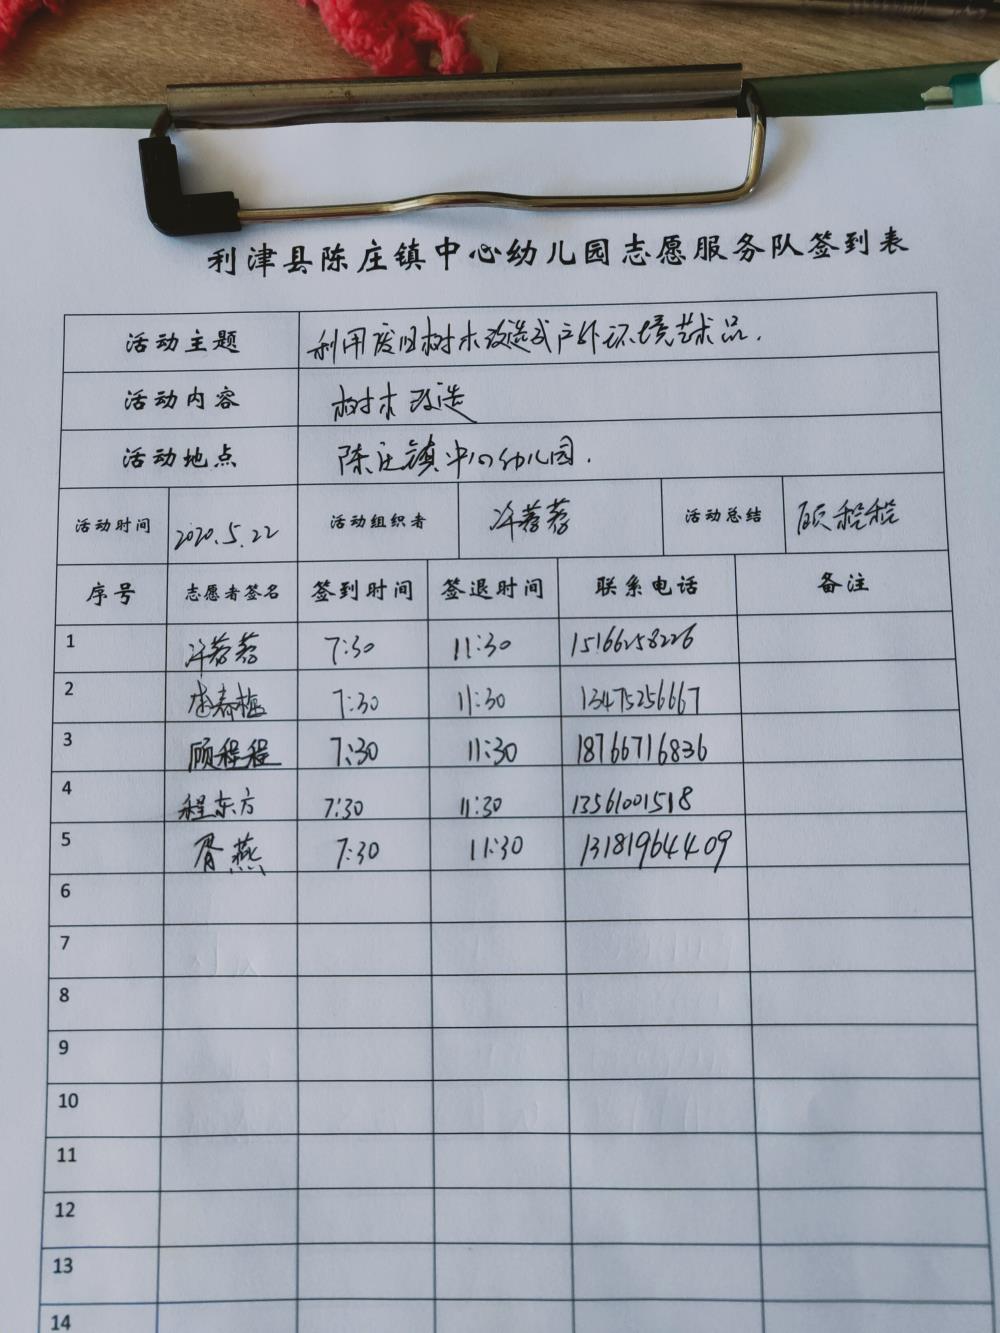 利津县陈庄镇中心幼儿园志愿服务队签到表
活动主题 利用废旧树木改造成户外环境艺术品.
活动内容 树木改造
活动地点 陈庄镇中心幼儿园.
活动时间 2020.5.22 活动组织者 许蓉蓉 活动总结 顾程程
序号 志愿者签名 签到时间 签退时间 联系电话 备注
1 许蓉蓉 7:30 11:30 15166258226
2 春梅 7:30 11:30 13475256667
3 顾程程 7:30 11:30 18766716836
4 程东方 7:30 11:30 13561001518
5 胥燕 7:30 11:30 13181964409
6
7
8
9
10
11
12
13
14